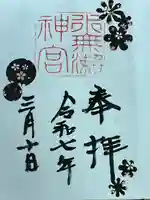 奉拝
水無瀬
神宮
令和七年
三月十日